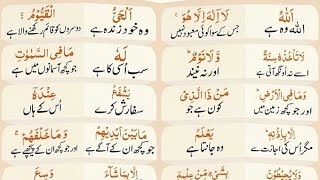 اَللّٰهُ لَاۤ اِلٰهَ اِلَّا هُوَ ۚ اَلْحَیُّ الْقَیُّوْمُ
وہ ہے جس کے سوا کوئی معبود نہیں وہ خود زندہ ہے دوسروں کو قائم رکھنے والا ہے
لَا تَاْخُذُهٗ سِنَةٌ وَّلَا نَوْمٌ ؕ لَهٗ مَا فِی السَّمٰوٰتِ
اسے نہ اونگھ آتی ہے اور نہ نیند سب اسی کا ہے جو کچھ آسمانوں میں ہے
وَمَا فِی الْاَرْضِ ؕ مَنْ ذَا الَّذِیْ یَشْفَعُ عِنْدَهٗۤ
اور جو کچھ زمین میں ہے کون ہے جو سفارش کرے اس کے ہاں
اِلَّا بِاِذْنِهٖ ؕ یَعْلَمُ مَا بَیْنَ اَیْدِیْهِمْ وَمَا خَلْفَهُمْ ۚ
مگر اس کی اجازت سے وہ جانتا ہے جو کچھ ان کے آگے ہے اور جو کچھ ان کے پیچھے ہے
وَلَا یُحِیْطُوْنَ بِشَیْءٍ مِّنْ عِلْمِهٖۤ اِلَّا بِمَا شَآءَ ۚ وَسِعَ